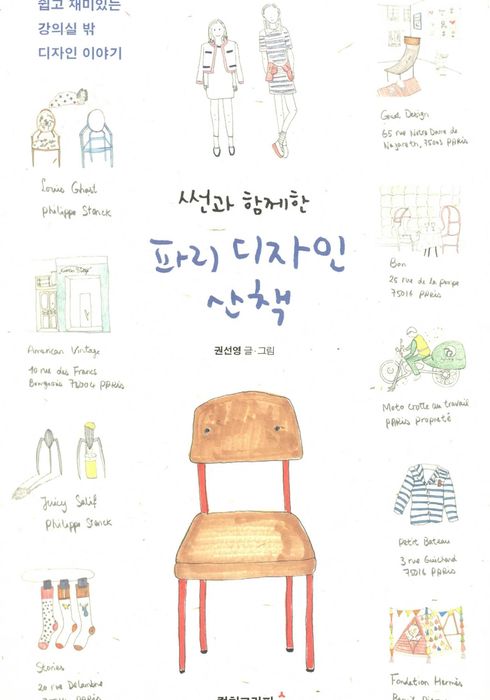 쉽고 재미있는
강의실 밖
디자인 이야기
썬과 함께한
파리 디자인
산책
권선영 글·그림
Louis Ghost
philippe Starck
American Vintage
10 rue des Francs
Bourgeois 75004 PARis
Juicy Salif
Philippe Starck
Stories
20 rue Delambre
Good Design
65 rue Notre Dame de
Nazareth, 75003 PARis
Bon
25 rue de la pompe
75016 PARis
Moto crotte au travail
PARis propreté
Petit Bateau
3 rue Guichard
75016 PARis
Fondation Hermès